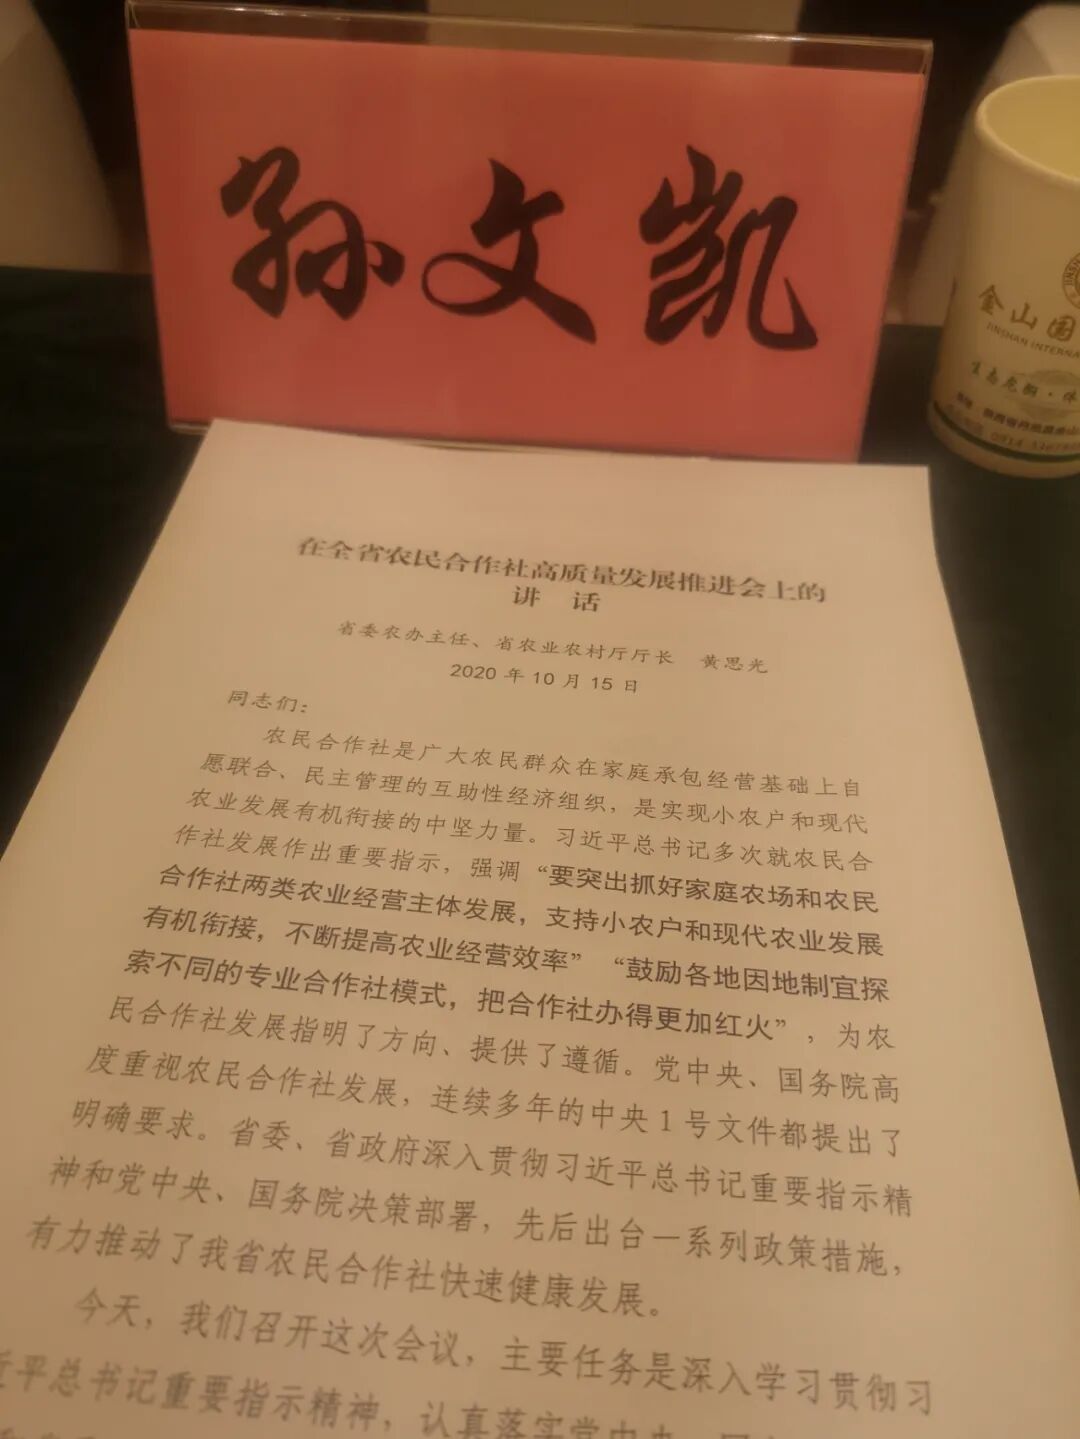 孙文凯
金山国
JINSHAN INTERNA
在全省农民合作社高质量发展推进会上的
讲 话
省委农办主任、省农业农村厅厅长 黄思光
2020 年 10 月 15 日
同志们：
农民合作社是广大农民群众在家庭承包经营基础上自
愿联合、民主管理的互助性经济组织，是实现小农户和现代
农业发展有机衔接的中坚力量。习近平总书记多次就农民合
作社发展作出重要指示，强调“要突出抓好家庭农场和农民
合作社两类农业经营主体发展，支持小农户和现代农业发展
有机衔接，不断提高农业经营效率”“鼓励各地因地制宜探
索不同的专业合作社模式，把合作社办得更加红火”，为农
民合作社发展指明了方向、提供了遵循。党中央、国务院高
度重视农民合作社发展，连续多年的中央1号文件都提出了
明确要求。省委、省政府深入贯彻习近平总书记重要指示精
神和党中央、国务院决策部署，先后出台一系列政策措施，
有力推动了我省农民合作社快速健康发展。
今天，我们召开这次会议，主要任务是深入学习贯彻习
近平总书记重要指示精神，认真落实党中央、